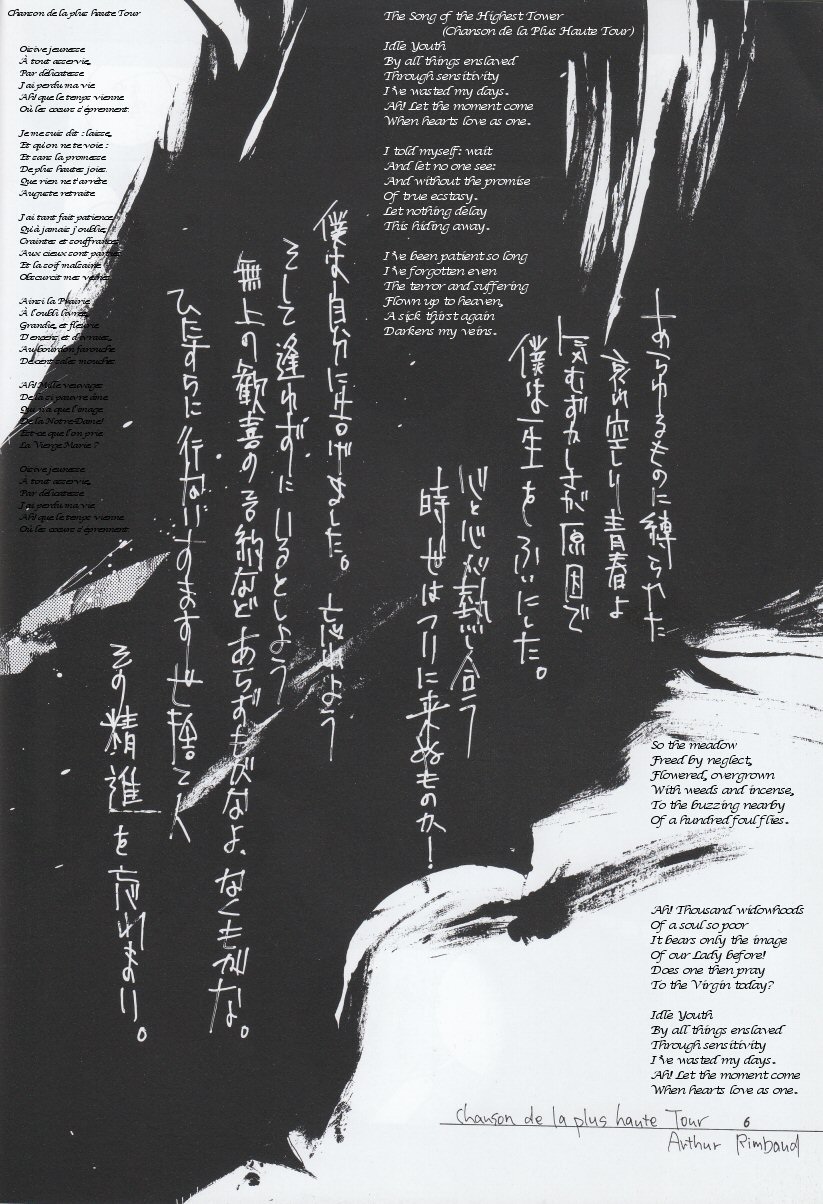 Chanson de la plus haute Tour
Oisive jeunesse
À tout asservie,
Par délicatesse
J'ai perdu ma vie
Ah! que le temps vienne
Où les cœurs s'éprennent.
Je me suis dit : laisse,
Et qu'on ne te voie :
Et sans la promesse
De plus hautes joies.
Que rien ne t'arrête
Auguste retraite
J'ai tant fait patience
Qu'à jamais j'oublie;
Craintes et souffrances
Aux cieux sont parties
Et la soif malsaine
Obscurcit mes veines
Ainsi la Prairie
À l'oubli livrée,
Grandie, et fleurie
D'encens et d'ivraies,
Au bourdon farouche
De cent sales mouches
Ah! Mille veuvages
De la si pauvre âme
Qui n'a que l'image
De la Notre-Dame!
Est-ce que l'on prie
La Vierge Marie ?
Oisive jeunesse
À tout asservie,
Par délicatesse
J'ai perdu ma vie
Ah! que le temps vienne
Où les cœurs s'éprennent.
The Song of the Highest Tower
(Chanson de la Plus Haute Tour)
Idle Youth
By all things enslaved
Through sensitivity
I've wasted my days.
Ah! Let the moment come
When hearts love as one.
I told myself: wait
And let no one see:
And without the promise
Of true ecstasy.
Let nothing delay
This hiding away.
I've been patient so long
I've forgotten even
The terror and suffering
Flown up to heaven,
A sick thirst again
Darkens my veins.
あらゆるものに縛られた
哀れ空しい青春よ
気むずかしさが原因で
僕は一生をふいにした。
心と心が熱し合う
時世はついに来ぬものか!
僕は自分に告げました。忘れよう
そして逢わずにいるとしよう
無上の歓喜の予約など あらずもがなよ、なくもがな。
ひたすらに行ないすます世捨て人
その精進を忘れまい。
So the meadow
Freed by neglect,
Flowered, overgrown
With weeds and incense,
To the buzzing nearby
Of a hundred foul flies.
Ah! Thousand widowhoods
Of a soul so poor
It bears only the image
Of our Lady before!
Does one then pray
To the Virgin today?
Idle Youth
By all things enslaved
Through sensitivity
I've wasted my days.
Ah! Let the moment come
When hearts love as one.
Chanson de la plus haute Tour 6
Arthur Rimbaud